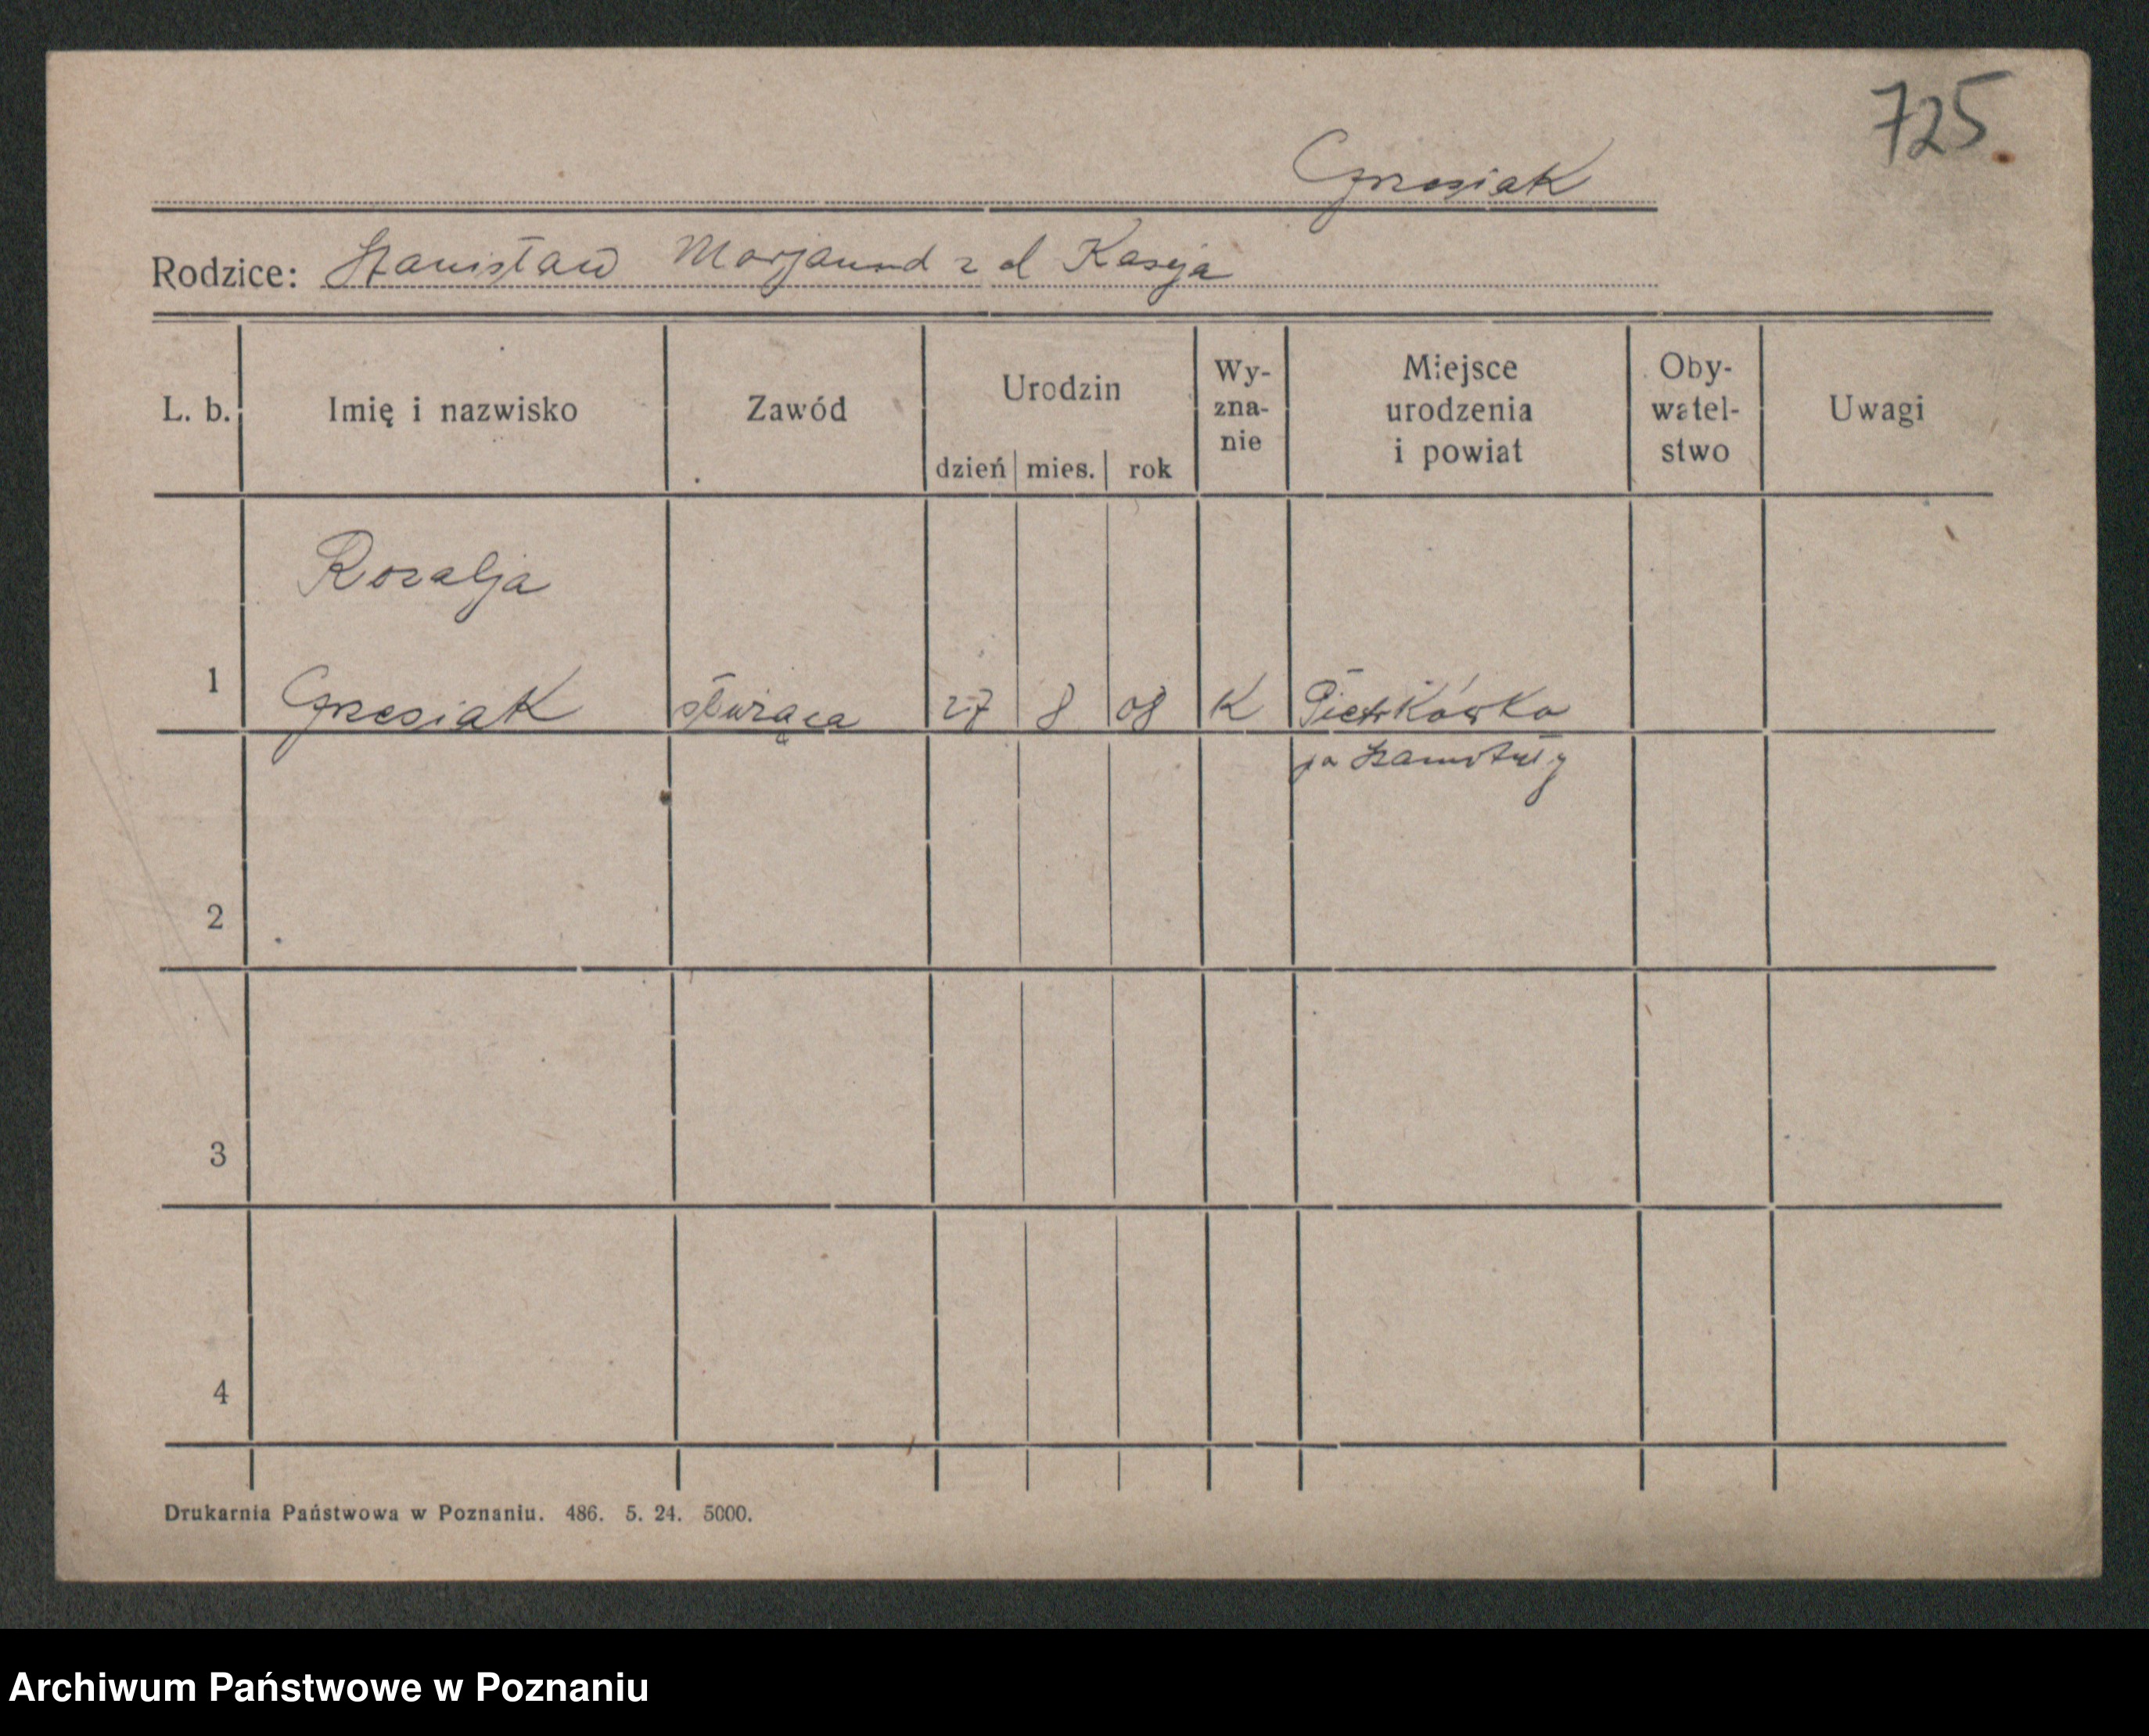 725.
Grzesiak
Rodzice: Stanisław Marjanna z d Kaseja
L. b. Imię i nazwisko Zawód Urodzin Wy-zna-nie Miejsce urodzenia i powiat Oby-watel-stwo Uwagi
dzień mies. rok
Rozalja
1 Grzesiak służąca 27 8 08 K Piotrkówko
pa Szamotuły
2
3
4
Drukarnia Państwowa w Poznaniu. 486. 5. 24. 5000.
Archiwum Państwowe w Poznaniu